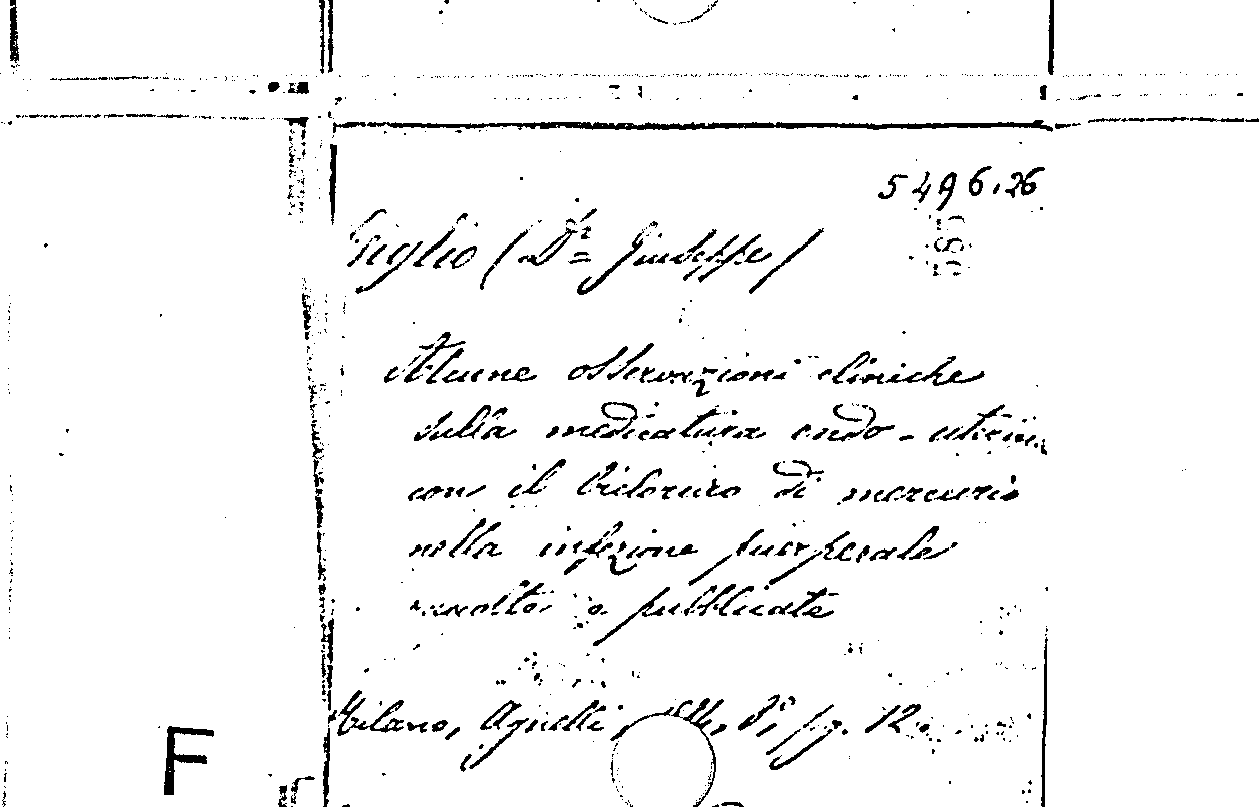 5496.26
Giglio (Dr= Giuseppe)
Alcune osservazioni cliniche
sulla medicatura endo-uterina
con il bicloruro di mercurio
nella infezione puerperale
raccolte e pubblicate
Milano, Agnelli, 8°, pg. 12.
F